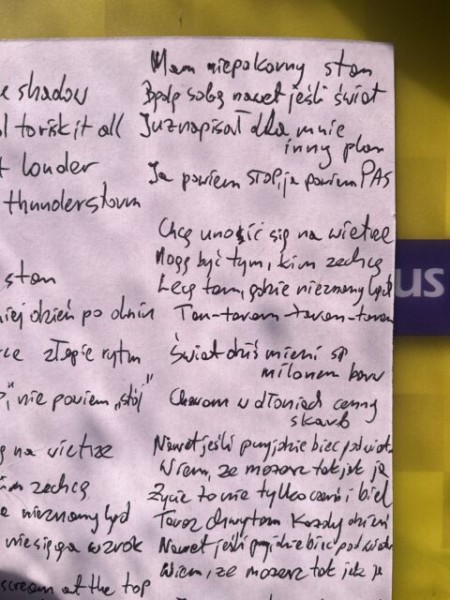 shadow
to risk it all
louder
thunderstorm
stan
dzień po dniu
złapie rytm
nie powiem „stój”
na wietrze
zechcę
nieznany ląd
nie sięga wzrok
scream at the top
Mam niepokorny stan
Będę sobą nawet jeśli świat
Już napisał dla mnie
inny plan
Ja powiem STOP, ja powiem PAS
Chcę unosić się na wietrze
Mogę być tym, kim zechcę
Lecę tam, gdzie nieznany ląd
Tan-taram-taram-taram
Świat dziś mieni się
milionem barw
Chowam w dłoniach cenny
skarb
Nawet jeśli przyjdzie biec pod wiatr
Wiem, że możesz tak jak ja
Życie to nie tylko czerń i biel
Teraz chwytam każdy dzień
Nawet jeśli przyjdzie biec pod wiatr
Wiem, że możesz tak jak ja
us